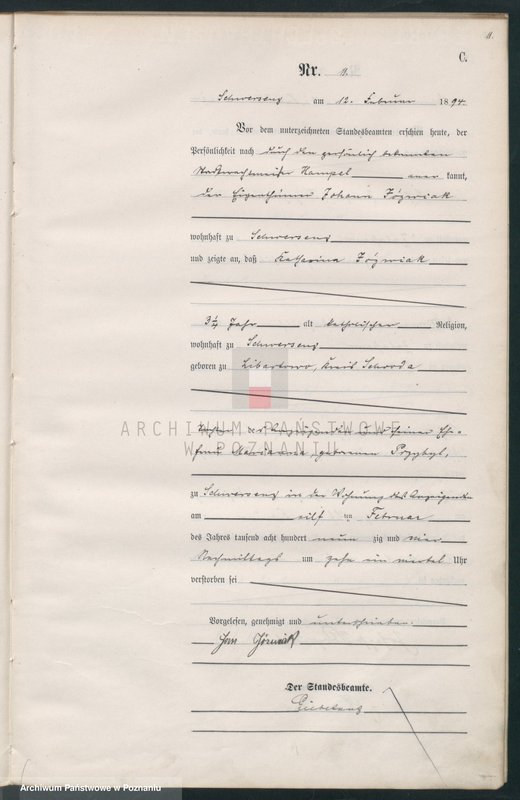 11.
C.
Nr. 11.
Schwersenz am 12. Februar 1894.
Vor dem unterzeichneten Standesbeamten erschien heute, der
Persönlichkeit nach durch den persönlich bekannten
Stadtwachtmeister Hampel aner kannt,
der Eigenthümer Johann Jóźwiak
wohnhaft zu Schwersenz
und zeigte an, daß Katharina Jóźwiak
3¼ Jahr alt katholischer Religion,
wohnhaft zu Schwersenz
geboren zu Libartowo, Kreis Schroda
Tochter des Anzeigenden und seiner Ehe-
frau Marianna geborenen Przybyl,
ARCHIWUM PAŃSTWOWE
W POZNANIU
zu Schwersenz in der Wohnung des Anzeigenden
am eilf ten Februar
des Jahres tausend acht hundert neun zig und vier
Nachmittags um zehn ein viertel Uhr
verstorben sei
Vorgelesen, genehmigt und unterschrieben.
Jan Jóźwiak
Der Standesbeamte.
Archiwum Państwowe w Poznaniu